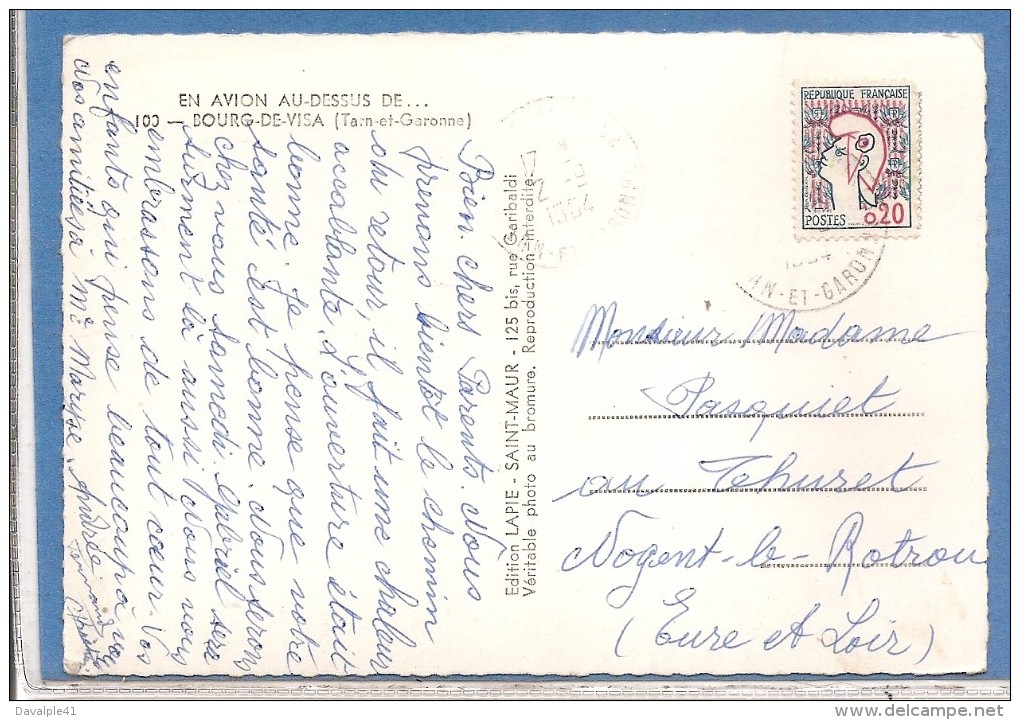 EN AVION AU-DESSUS DE...
100 — BOURG-DE-VISA (Tarn-et-Garonne)
Bien chers Parents. Nous
prenons bientôt le chemin
du retour, il fait une chaleur
accablante, l'ouverture était
bonne. Je pense que votre
santé est bonne. Nous serons
chez nous samedi, Gabriel sera
surement là aussi. Nous vous
embrassons de tout cœur. Vos
enfants qui pense beaucoup à vous
Nos amitiés à Me Maryse. André
Edition LAPIE - SAINT-MAUR - 125 bis, rue Garibaldi
Véritable photo au bromure. Reproduction interdite
REPUBLIQUE FRANÇAISE
POSTES 0,20
1964
-ET-GARONNE
Monsieur Madame
Pasquiet
au Thuret
Nogent-le-Rotrou
(Eure et Loir)
Davalple41
www.delcampe.net